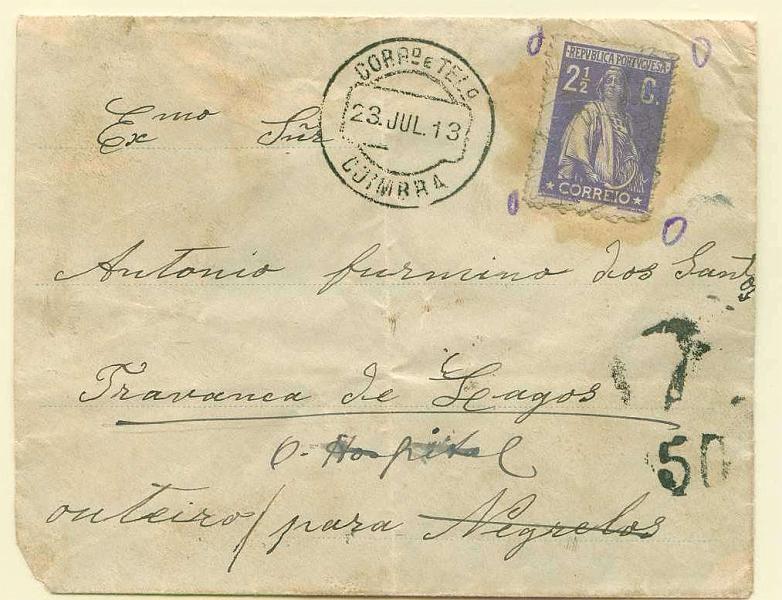 CORRº E TELº
23.JUL.13
COIMBRA
REPUBLICA PORTUGUESA
2 1/2 C.
CORREIO
Exmo Snr
Antonio furmino dos Santos
Travanca de Lagos
O. Hospital
outeiro / para Negrelos
T
50